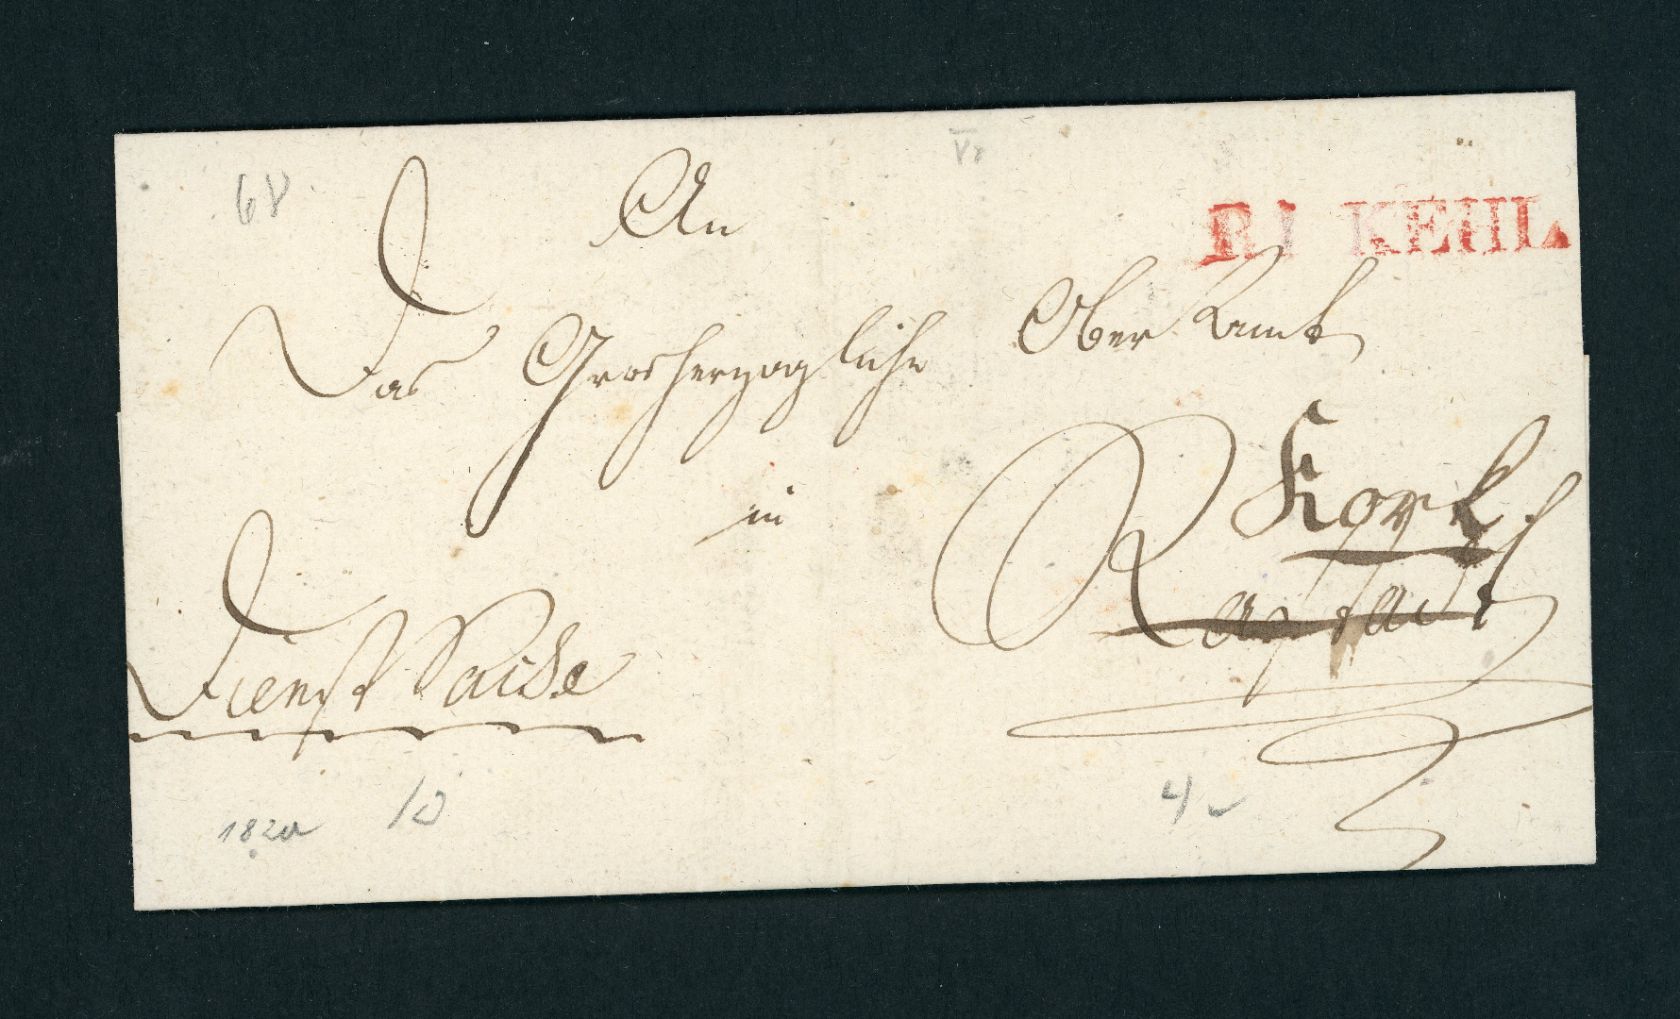 An
R1 KEHL.
Das Grosherzogliche Ober Aamt
in
Kork.
Rastadt
Dienst Sache
1820